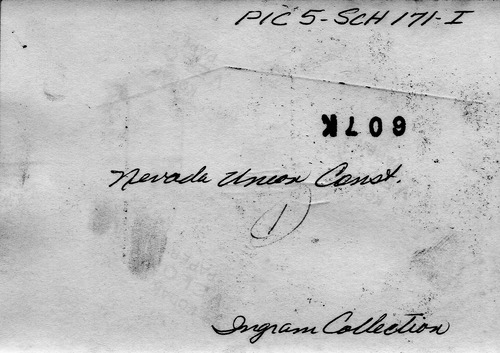 PIC 5-SCH 171-I
607K
Nevada Union Const.
1
Ingram Collection